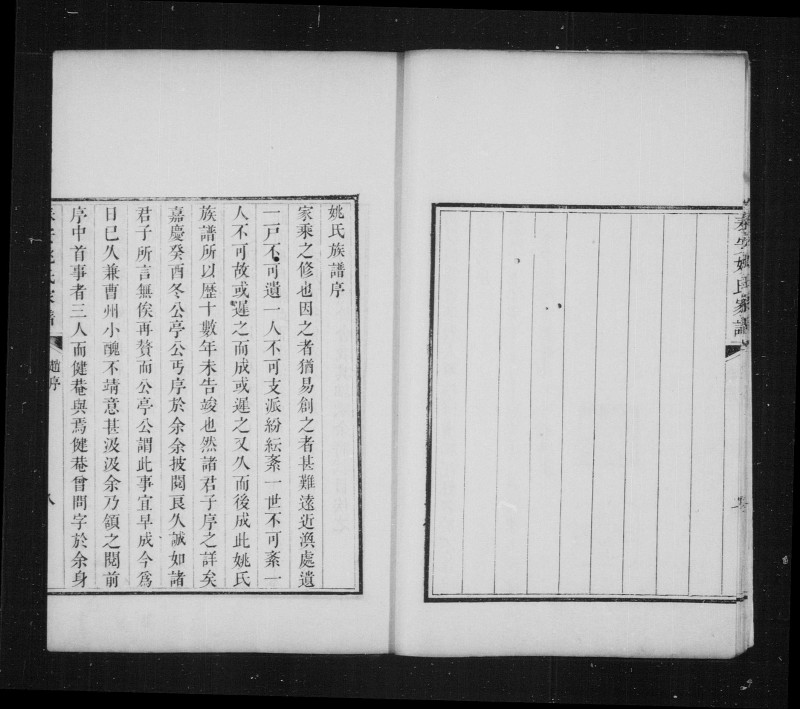 泰安姚氏家譜
姚氏族譜序
家乘之修也因之者猶易創之者甚難遠近渙處遺
一戸不可遺一人不可支派紛紜紊一世不可紊一
人不可故或遲之而成或遲之又久而後成此姚氏
族譜所以歷十數年未告竣也然諸君子序之詳矣
嘉慶癸酉冬公亭公丐序於余余披閱良久誠如諸
君子所言無俟再贅而公亭公謂此事宜早成今爲
日已久兼曹州小醜不靖意甚汲汲余乃領之閱前
序中首事者三人而健菴與焉健菴曾問字於余身
姚氏家譜
趙序
八